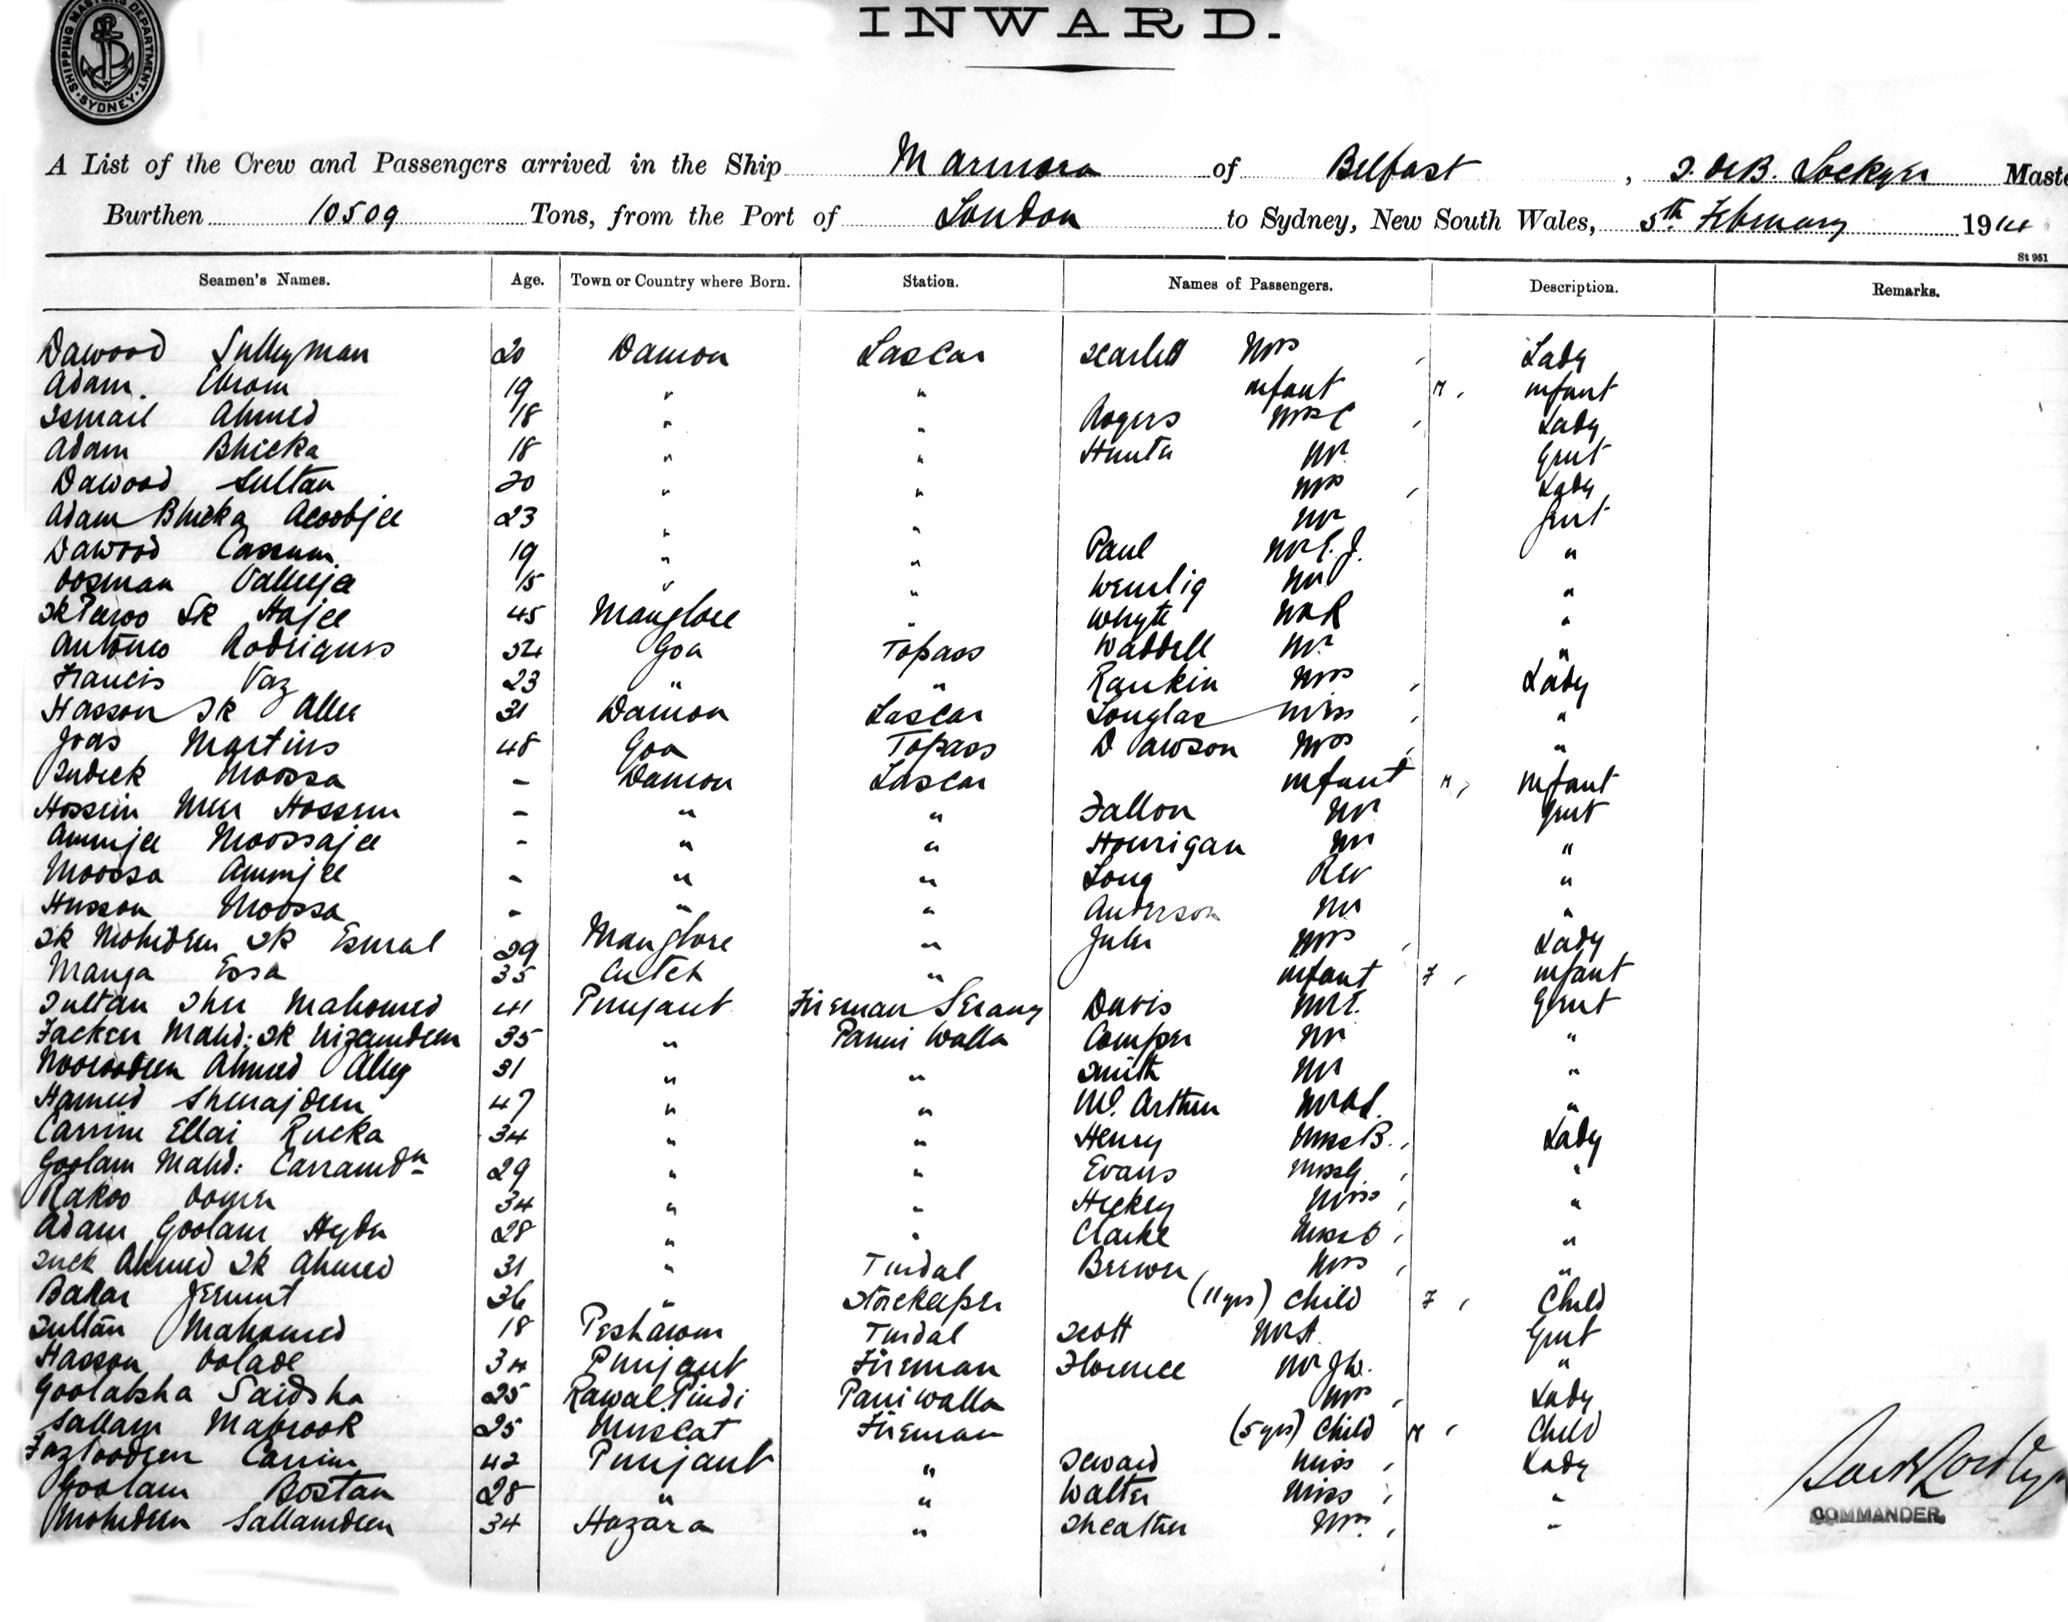 SHIPPING MASTERS DEPARTMENT · SYDNEY ·
INWARD.
A List of the Crew and Passengers arrived in the Ship Marmora of Belfast, De B. Lockyer Maste
Burthen 10509 Tons, from the Port of London to Sydney, New South Wales, 5th February 1914
St 951
Seamen's Names. Age. Town or Country where Born. Station. Names of Passengers. Description. Remarks.
Dawood Sulleyman 20 Damon Lascar Scarlett Mrs Lady
Adam Ebrom 19 " " infant M infant
Ismail Ahmed 18 " " Rogers Mrs C Lady
Adam Bhicka 18 " " Hunter Mr Gent
Dawood Sultan 20 " " Mrs Lady
Adam Bhicka Acoobjee 23 " " Mr Gent
Dawood Cassum 19 " " Paul Mr J. "
Oosman Valleejee 15 " " Wenlig Mr "
Sk Hajee 45 Manglore " Whyte Mr R "
Antonio Rodrigues 32 Goa Topass Waddell Mr "
Francis Vaz 23 " " Rankin Mrs Lady
Hasson Sk Allee 31 Damon Lascar Douglas Miss "
Joas Martins 48 Goa Topass Dawson Mrs "
Moossa - Damon Lascar infant M infant
Hossein Meer Hossein - " " Fallon Mr Gent
Amimjee Moossajee - " " Hourigan Mr "
Moossa Amimjee - " " Long Rev "
Husson Moossa - " " Anderson Mr "
Sk Mohideen Sk Esmal 29 Manglore " Mrs Lady
Manga Essa 35 Cutch " infant F infant
Sultan Sher Mahomed 41 Punjaut Fireman Serang Davis Mr E. Gent
Fackeer Mahd: Sk Nizamdeen 35 " Panni Walla Comper Mr "
Nooroodeen Ahmed Alley 31 " " Smith Mr "
Hameed Sherajdeen 47 " " McArthur Mr "
Carrim Ellai Rucka 34 " " Henry Miss B. Lady
Goolam Mahd: Carramdn 29 " " Evans Miss G "
Rakoo Oomer 34 " " Hickey Miss "
Adam Goolam Hyder 28 " " Clarke Miss "
Ahmed Sk Ahmed 31 " Tindal Brewer Mrs "
Bakar 36 " Storekeeper (11 yrs) Child F Child
Sultan Mahomed 18 Peshawur Tindal Scott Mr A. Gent
Hasson Oolade 34 Punjaut Fireman Florence Mr J W. "
Goolabsha Saidsha 25 Rawal Pindi Paniwalla Mrs Lady
Sallam Mabrook 25 Muscat Fireman (5 yrs) Child M Child
Fazloodeen Carrim 42 Punjaut " Seward Miss Lady
Goolam Bostan 28 " " Walter Miss "
Mohideen Sallamdeen 34 Hazara " Sheather Mrs. "
COMMANDER.